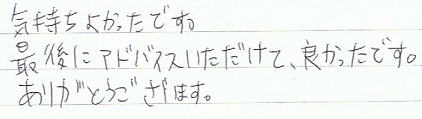 気持ちよかったです。
最後にアドバイスいただけて、良かったです。
ありがとうございます。